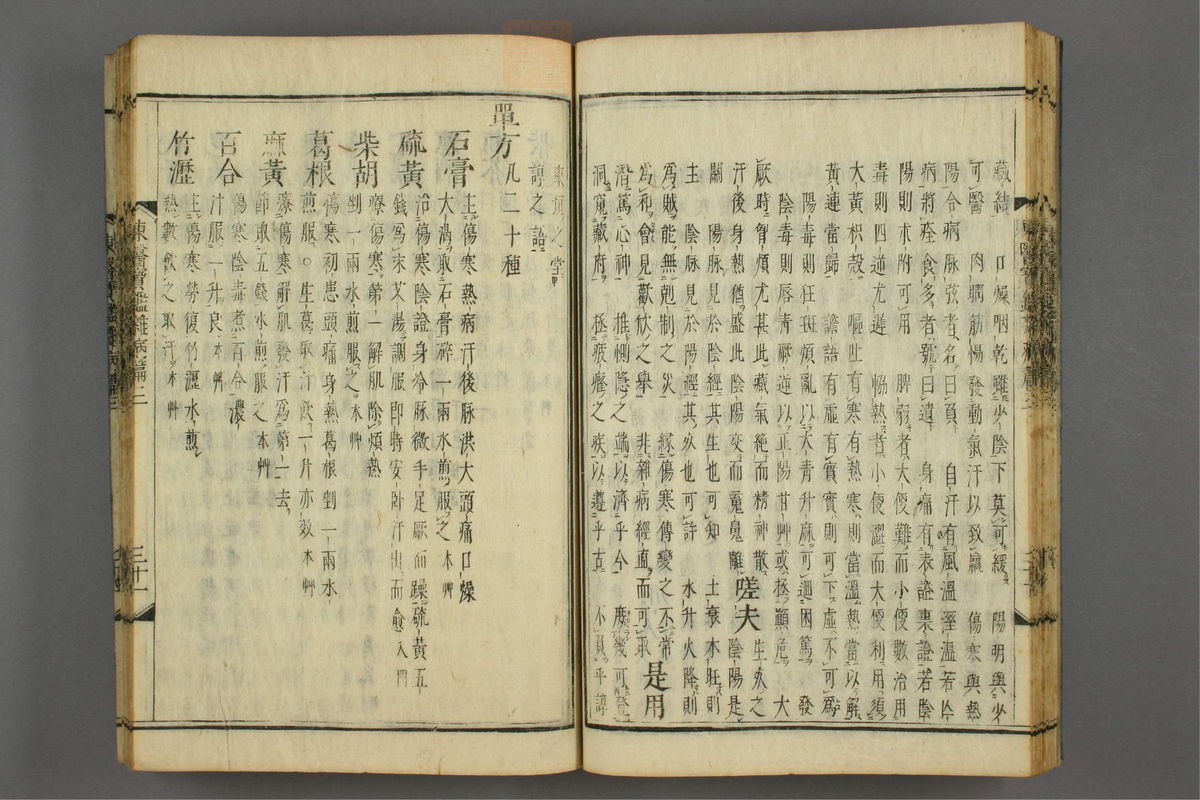 藏結 口燥咽乾雖少陰下莫可緩 陽明與少
可醫 肉瞤筋惕發動氣汗以致羸 傷寒與熱
陽合病脉弦者名曰負 自汗有風溫濕溫若陰
病將痊食多者號曰遺 身痛有表證裏證若陰
陽則求附可用 脾弱者大便難而小便數治用
毒則四逆尤遲 恊熱者小便澀而大便利用須
大黃枳殼 嘔吐有寒有熱寒則當溫熱當以解
黃連當歸 譫語有虛有實實則可下虛不可爲
陽毒則狂斑煩亂以大青升麻可廻困篤 發
陰毒則唇青厥逆以正陽甘艸或拯顚危 大
厥時胷煩尤甚此藏氣絶而精神散 生死之
汗後身熱猶盛此陰陽交而䰟鬼離 嗟夫 陰陽是
關 陽脉見於陰經其生也可知 土衰木旺則
主 陰脉見於陽經其死也可許 水升火降則
爲賊能無剋制之災 縁傷寒傳變之不常
爲和會見歡忻之擧 非雜病經直而可取 是用
潛篤心神 推惻隠之端以濟乎今 庶幾可
洞窺藏府 拯疲癃之疾以遵乎古 不負乎諄
東垣之堂
諄之語
單方 凡二十種
石膏 主傷寒熱病汗後脉洪大頭痛口燥
大渴取石膏碎一兩水煎服之 本艸
硫黃 治傷寒陰證身冷脉微手足厥而躁硫黃五
錢爲末艾湯調服卽時安卧汗出而愈 入門
柴胡 療傷寒第一解肌除煩熱
剉一兩水煎服之 本艸
葛根 傷寒初患頭痛身熱葛根剉一兩水
煎服○生葛取汁飮一升亦效 本艸
麻黃 療傷寒解肌發汗爲第一去
節取五錢水煎服之 本艸
百合 傷寒陰毒煮百合濃
汁服一升良 本艸
竹瀝 主傷寒勞復竹瀝水煎
熱數飮之取汗 本艸
東醫寶鑑雜病篇二
三十一